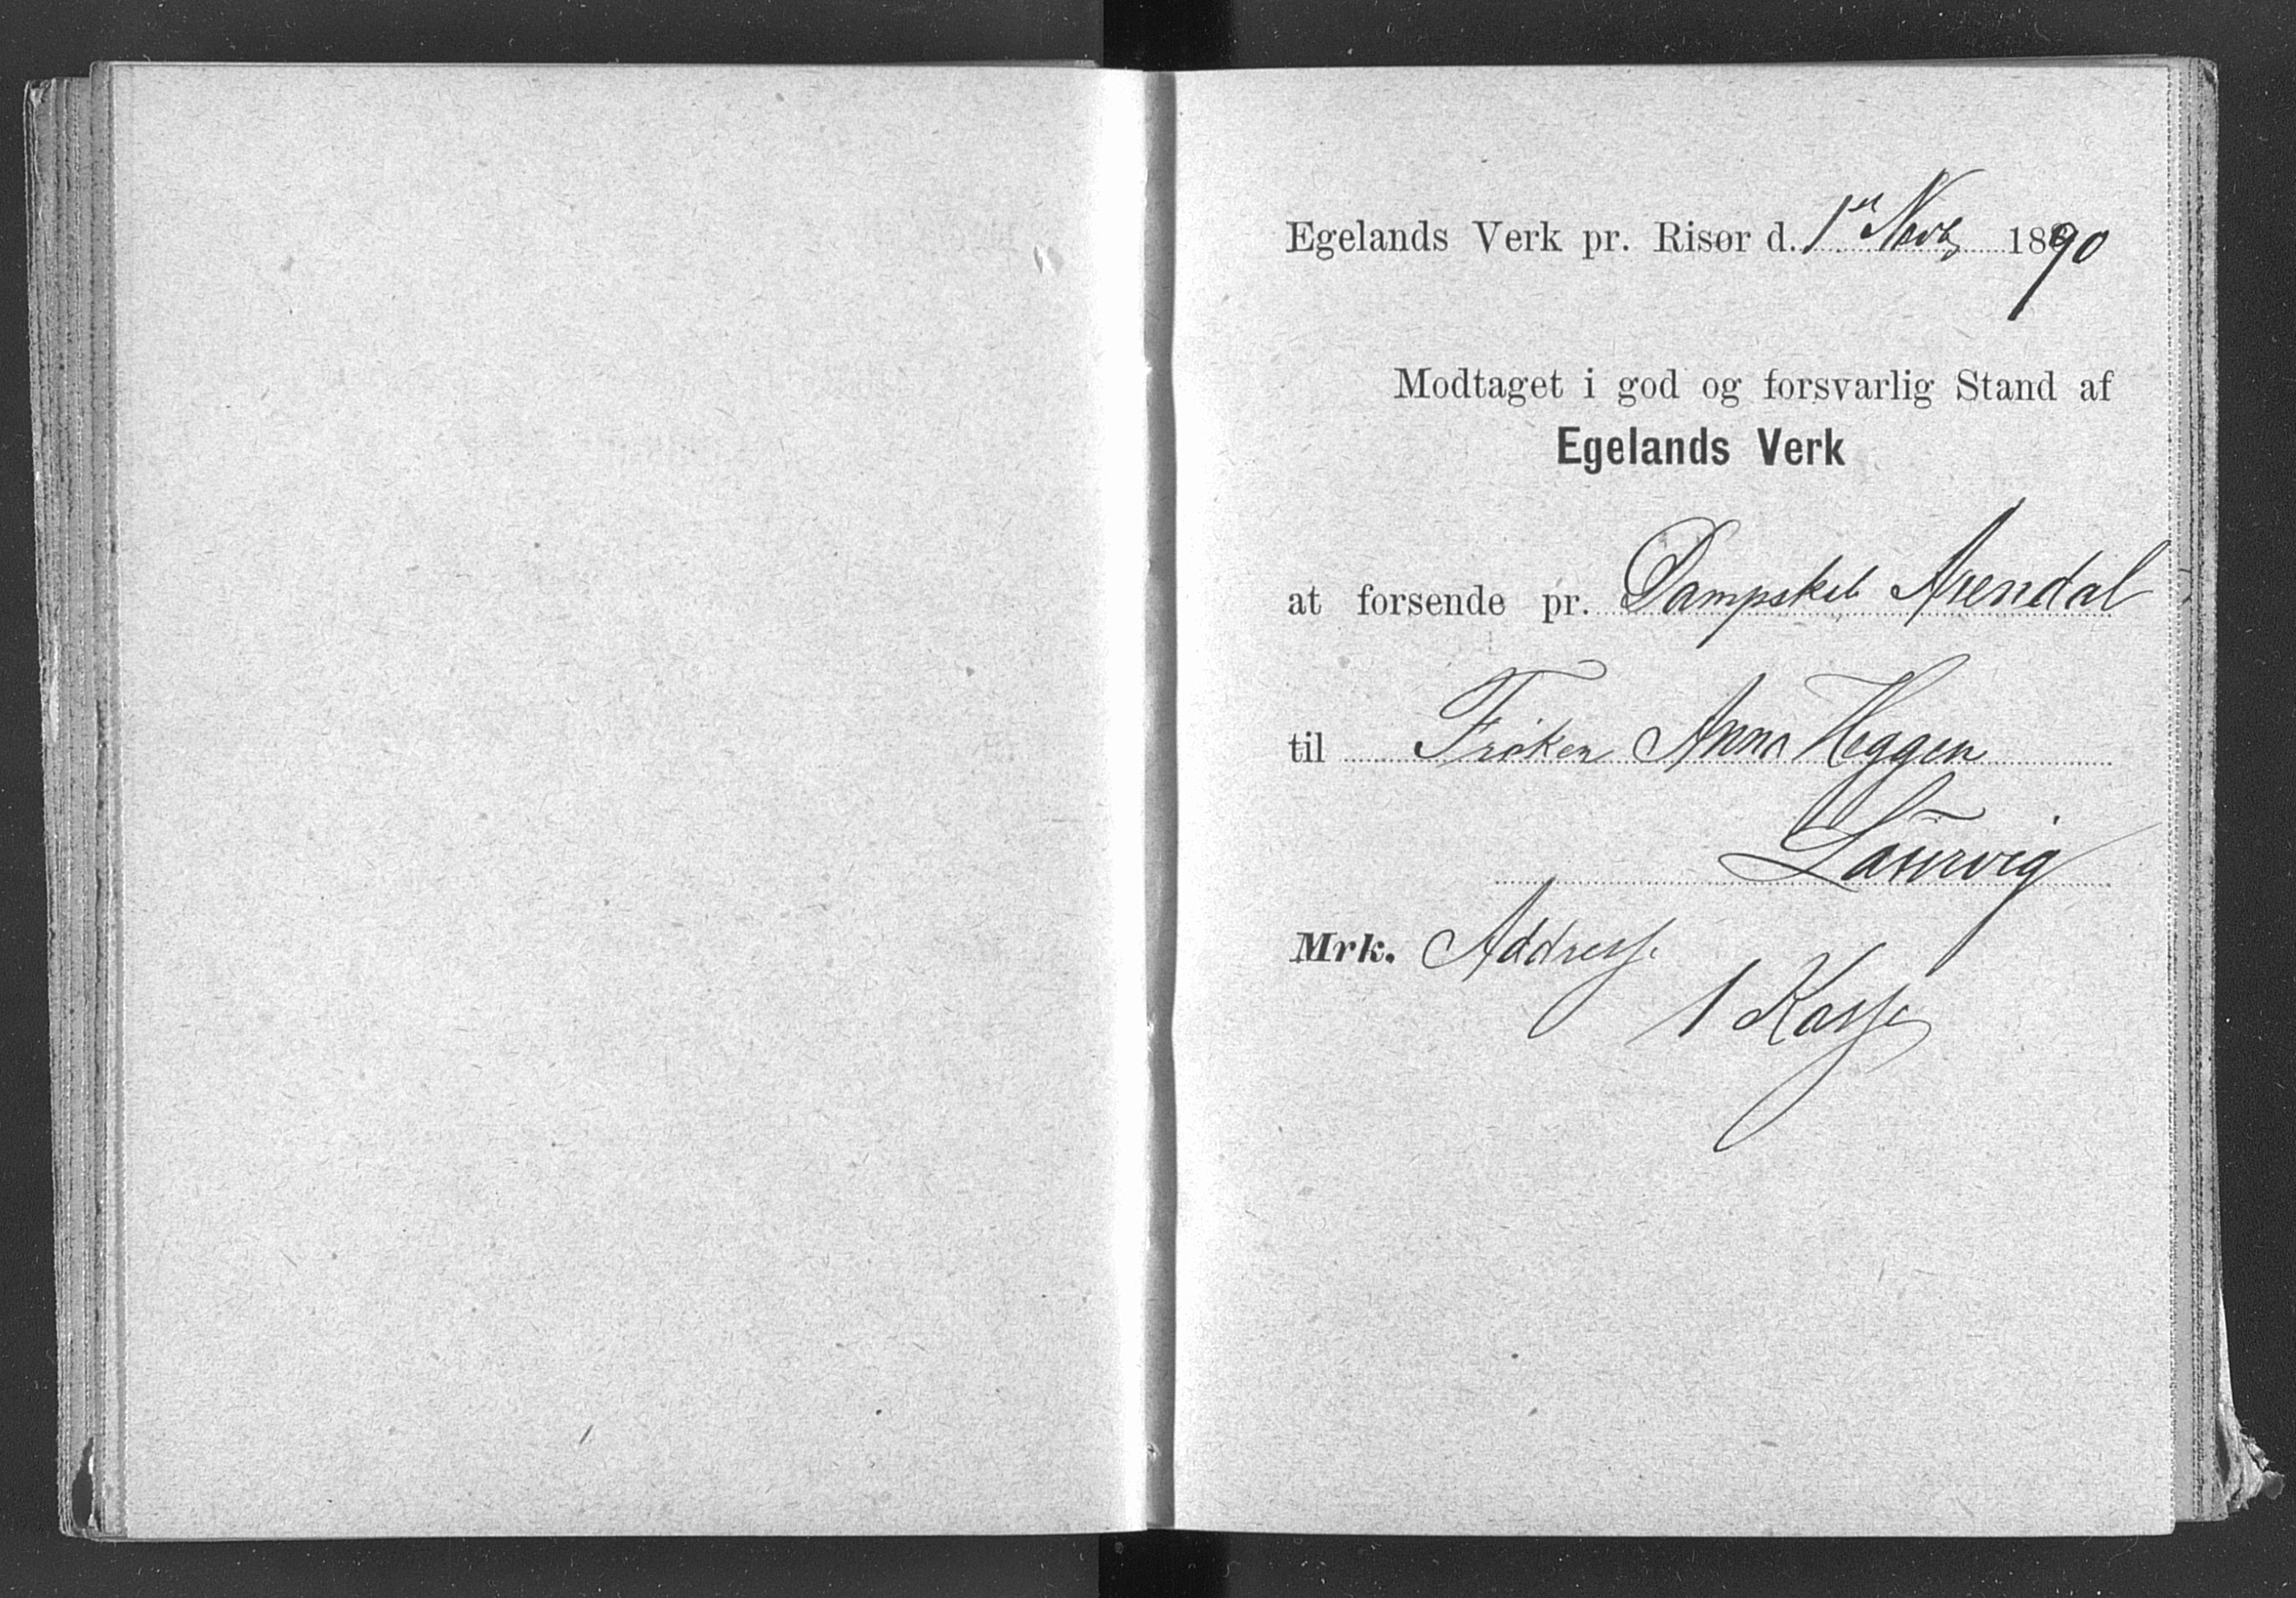 Egelands Verk pr. Risør d. 1st Novb 1890
Modtaget i god og forsvarlig Stand af
Egelands Verk
at forsende pr. Dampskib Arendal
til Frøken Anna Heggen
Laurvig
Mrk. Addresse
1 Kasse